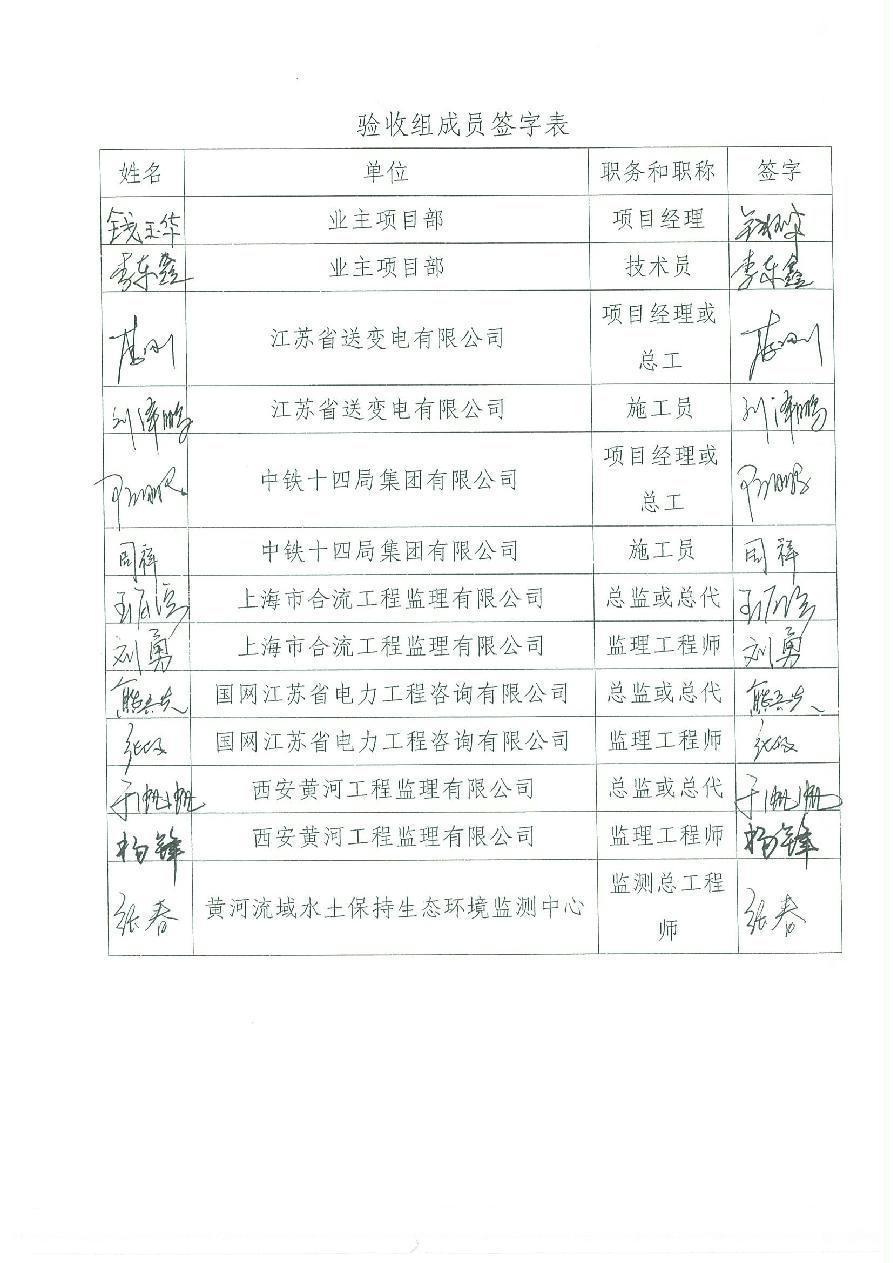 验收组成员签字表
姓名 单位 职务和职称 签字
钱玉华 业主项目部 项目经理
李东鑫 业主项目部 技术员 李东鑫
江苏省送变电有限公司 项目经理或
总工
刘泽鹏 江苏省送变电有限公司 施工员 刘泽鹏
中铁十四局集团有限公司 项目经理或
总工
周祥 中铁十四局集团有限公司 施工员 周祥
上海市合流工程监理有限公司 总监或总代
刘勇 上海市合流工程监理有限公司 监理工程师 刘勇
国网江苏省电力工程咨询有限公司 总监或总代
国网江苏省电力工程咨询有限公司 监理工程师
于帆帆 西安黄河工程监理有限公司 总监或总代 于帆帆
杨锋 西安黄河工程监理有限公司 监理工程师 杨锋
张春 黄河流域水土保持生态环境监测中心 监测总工程
师 张春